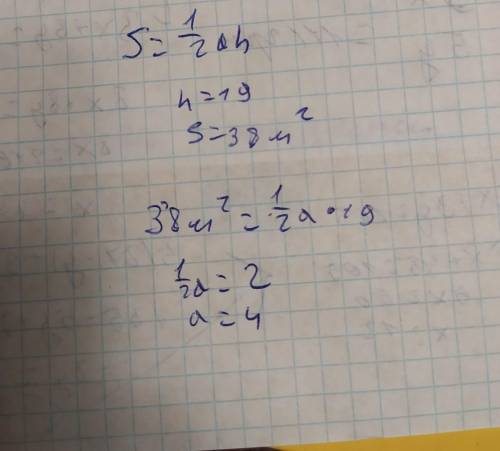 S = 1/2 ah
h = 19
S = 38 м²
38 м² = 1/2 a • 19
1/2 a = 2
a = 4